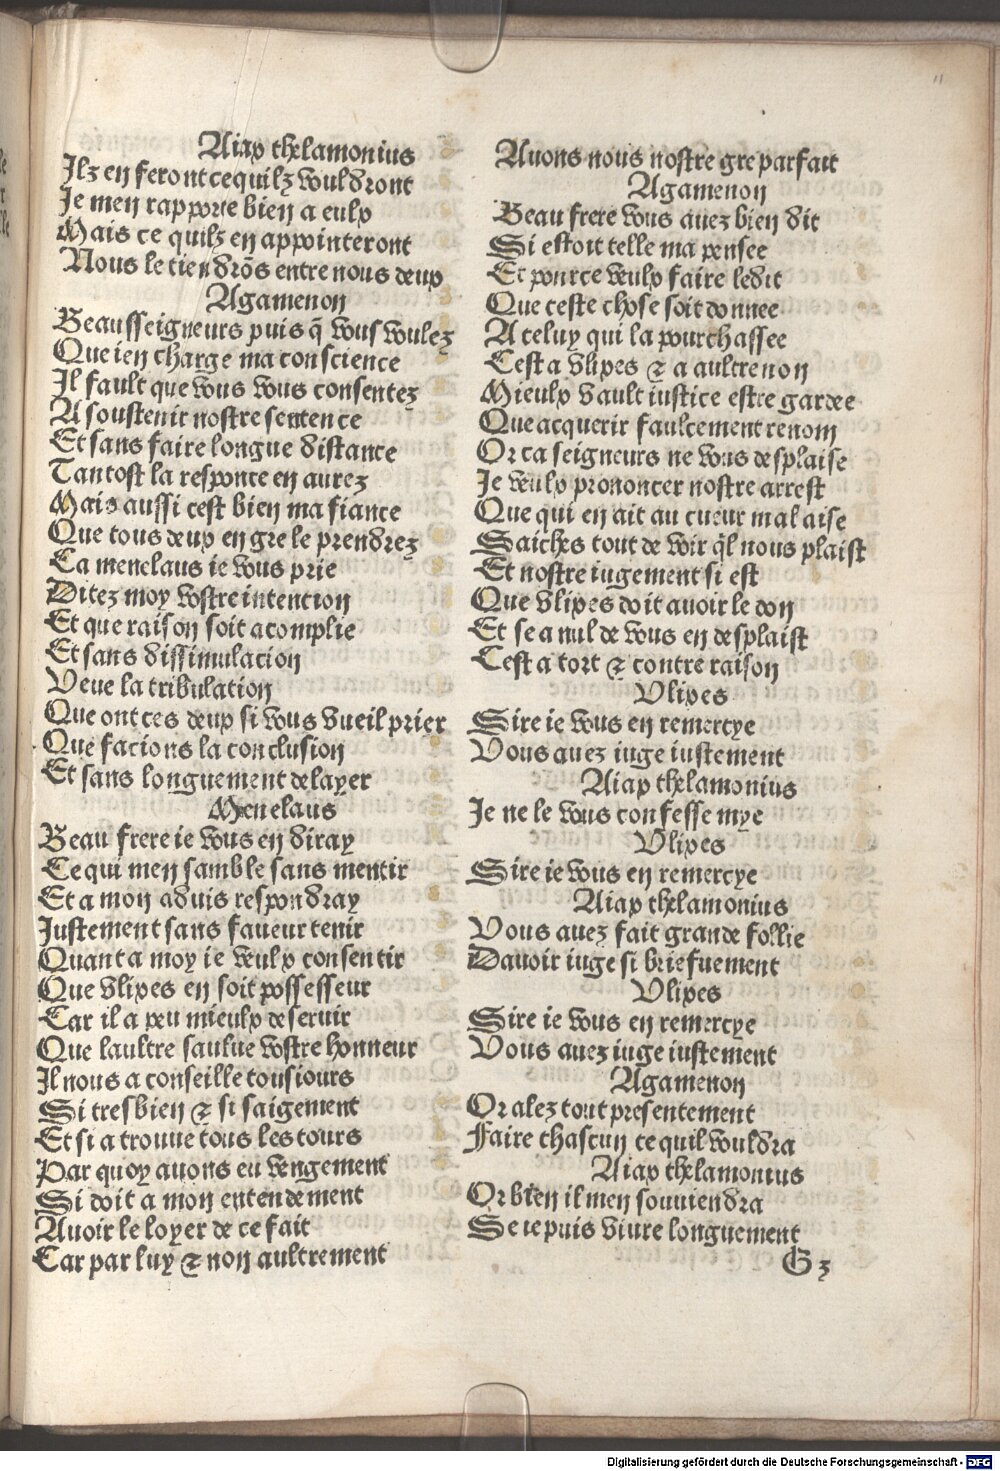 11
Aiax thelamonius
Ilz en feront ce quilz vouldront
Je men rapporte bien a eulx
Mais ce quilz en appointeront
Nous le tiendrõs entre nous deux
Agamenon
Beausseigneurs puis q̃ vous voulez
Que ien charge ma conscience
Il fault que vous vous consentez
A soustenir nostre sentence
Et sans faire longue distance
Tantost la responce en aurez
Mais aussi cest bien ma fiance
Que tous deux en gre le prendrez
Ca menelaus ie vous prie
Ditez moy vostre intencion
Et que raison soit acomplie
Et sans dissimulacion
Veue la tribulation
Que ont ces deux si vous vueil prier
Que facions la conclusion
Et sans longuement delayer
Menelaus
Beau frere ie vous en diray
Ce qui men samble sans mentir
Et a mon aduis respondray
Justement sans faueur tenir
Quant a moy ie veulx consentir
Que vlixes en soit possesseur
Car il a peu mieulx deseruir
Que laultre saulue vostre honneur
Il nous a conseille tousiours
Si tresbien ⁊ si saigement
Et si a trouue tous les tours
Par quoy auons eu vengement
Si doit a mon entendement
Auoir le loyer de ce fait
Car par luy ⁊ non aultrement
Auons nous nostre gre parfait
Agamenon
Beau frere vous auez bien dit
Si estoit telle ma pensee
Et pource veulx faire ledit
Que ceste chose soit donnee
A celuy qui la pourchassee
Cest a vlixes ⁊ a aultre non
Mieulx vault iustice estre gardee
Que acquerir faulcement renom
Or ca seigneurs ne vous desplaise
Je veulx prononcer nostre arrest
Que qui en ait au cueur mal aise
Saiches tout de voir q̃l nous plaist
Et nostre iugement si est
Que vlixes doit auoir le don
Et se a nul de vous en desplaist
Cest a tort ⁊ contre raison
Vlixes
Sire ie vous en remercye
Vous auez iuge iustement
Aiax thelamonius
Je ne le vous confesse mye
Vlixes
Sire ie vous en remercye
Aiax thelamonius
Vous auez fait grande follie
Dauoir iuge si briefuement
Vlixes
Sire ie vous en remercye
Vous auez iuge iustement
Agamenon
Or alez tout presentement
Faire chascun ce quil vouldra
Aiax thelamonius
Or bien il men souuiendra
Se ie puis viure longuement
G z
Digitalisierung gefördert durch die Deutsche Forschungsgemeinschaft - DFG